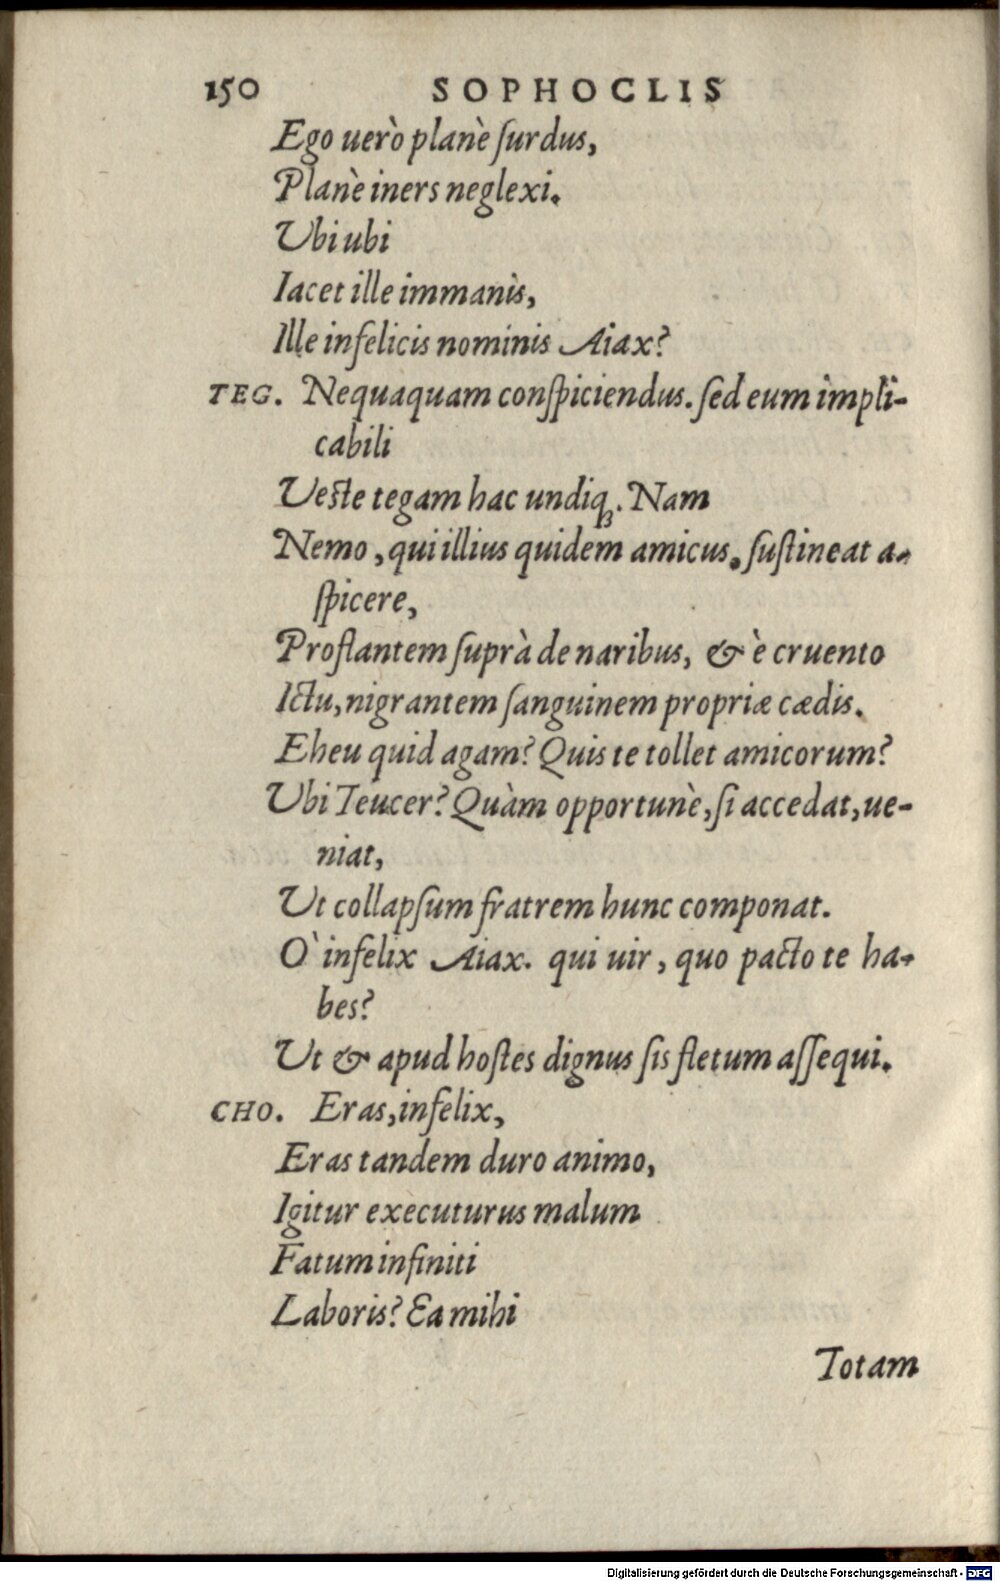 150 SOPHOCLIS
Ego uerò planè ſurdus,
Planè iners neglexi.
Ubi ubi
Iacet ille immanìs,
Ille infelicis nominis Aiax?
TEG. Nequaquam conſpiciendus. ſed eum impli-
cabili
Veſte tegam hac undiqꝫ. Nam
Nemo, qui illius quidem amicus, ſuſtineat a-
ſpicere,
Proflantem ſuprà de naribus, & è cruento
Ictu, nigrantem ſanguinem propriæ cædis.
Eheu quid agam? Quis te tollet amicorum?
Ubi Teucer? Quàm opportunè, ſi accedat, ue-
niat,
Ut collapſum fratrem hunc componat.
O` infelix Aiax. qui uir, quo pacto te ha-
bes?
Ut & apud hoſtes dignus ſis fletum aſſequi.
CHO. Eras, infelix,
Eras tandem duro animo,
Igitur executurus malum
Fatum infiniti
Laboris? Ea mihi
Totam
Digitalisierung gefördert durch die Deutsche Forschungsgemeinschaft - DFG